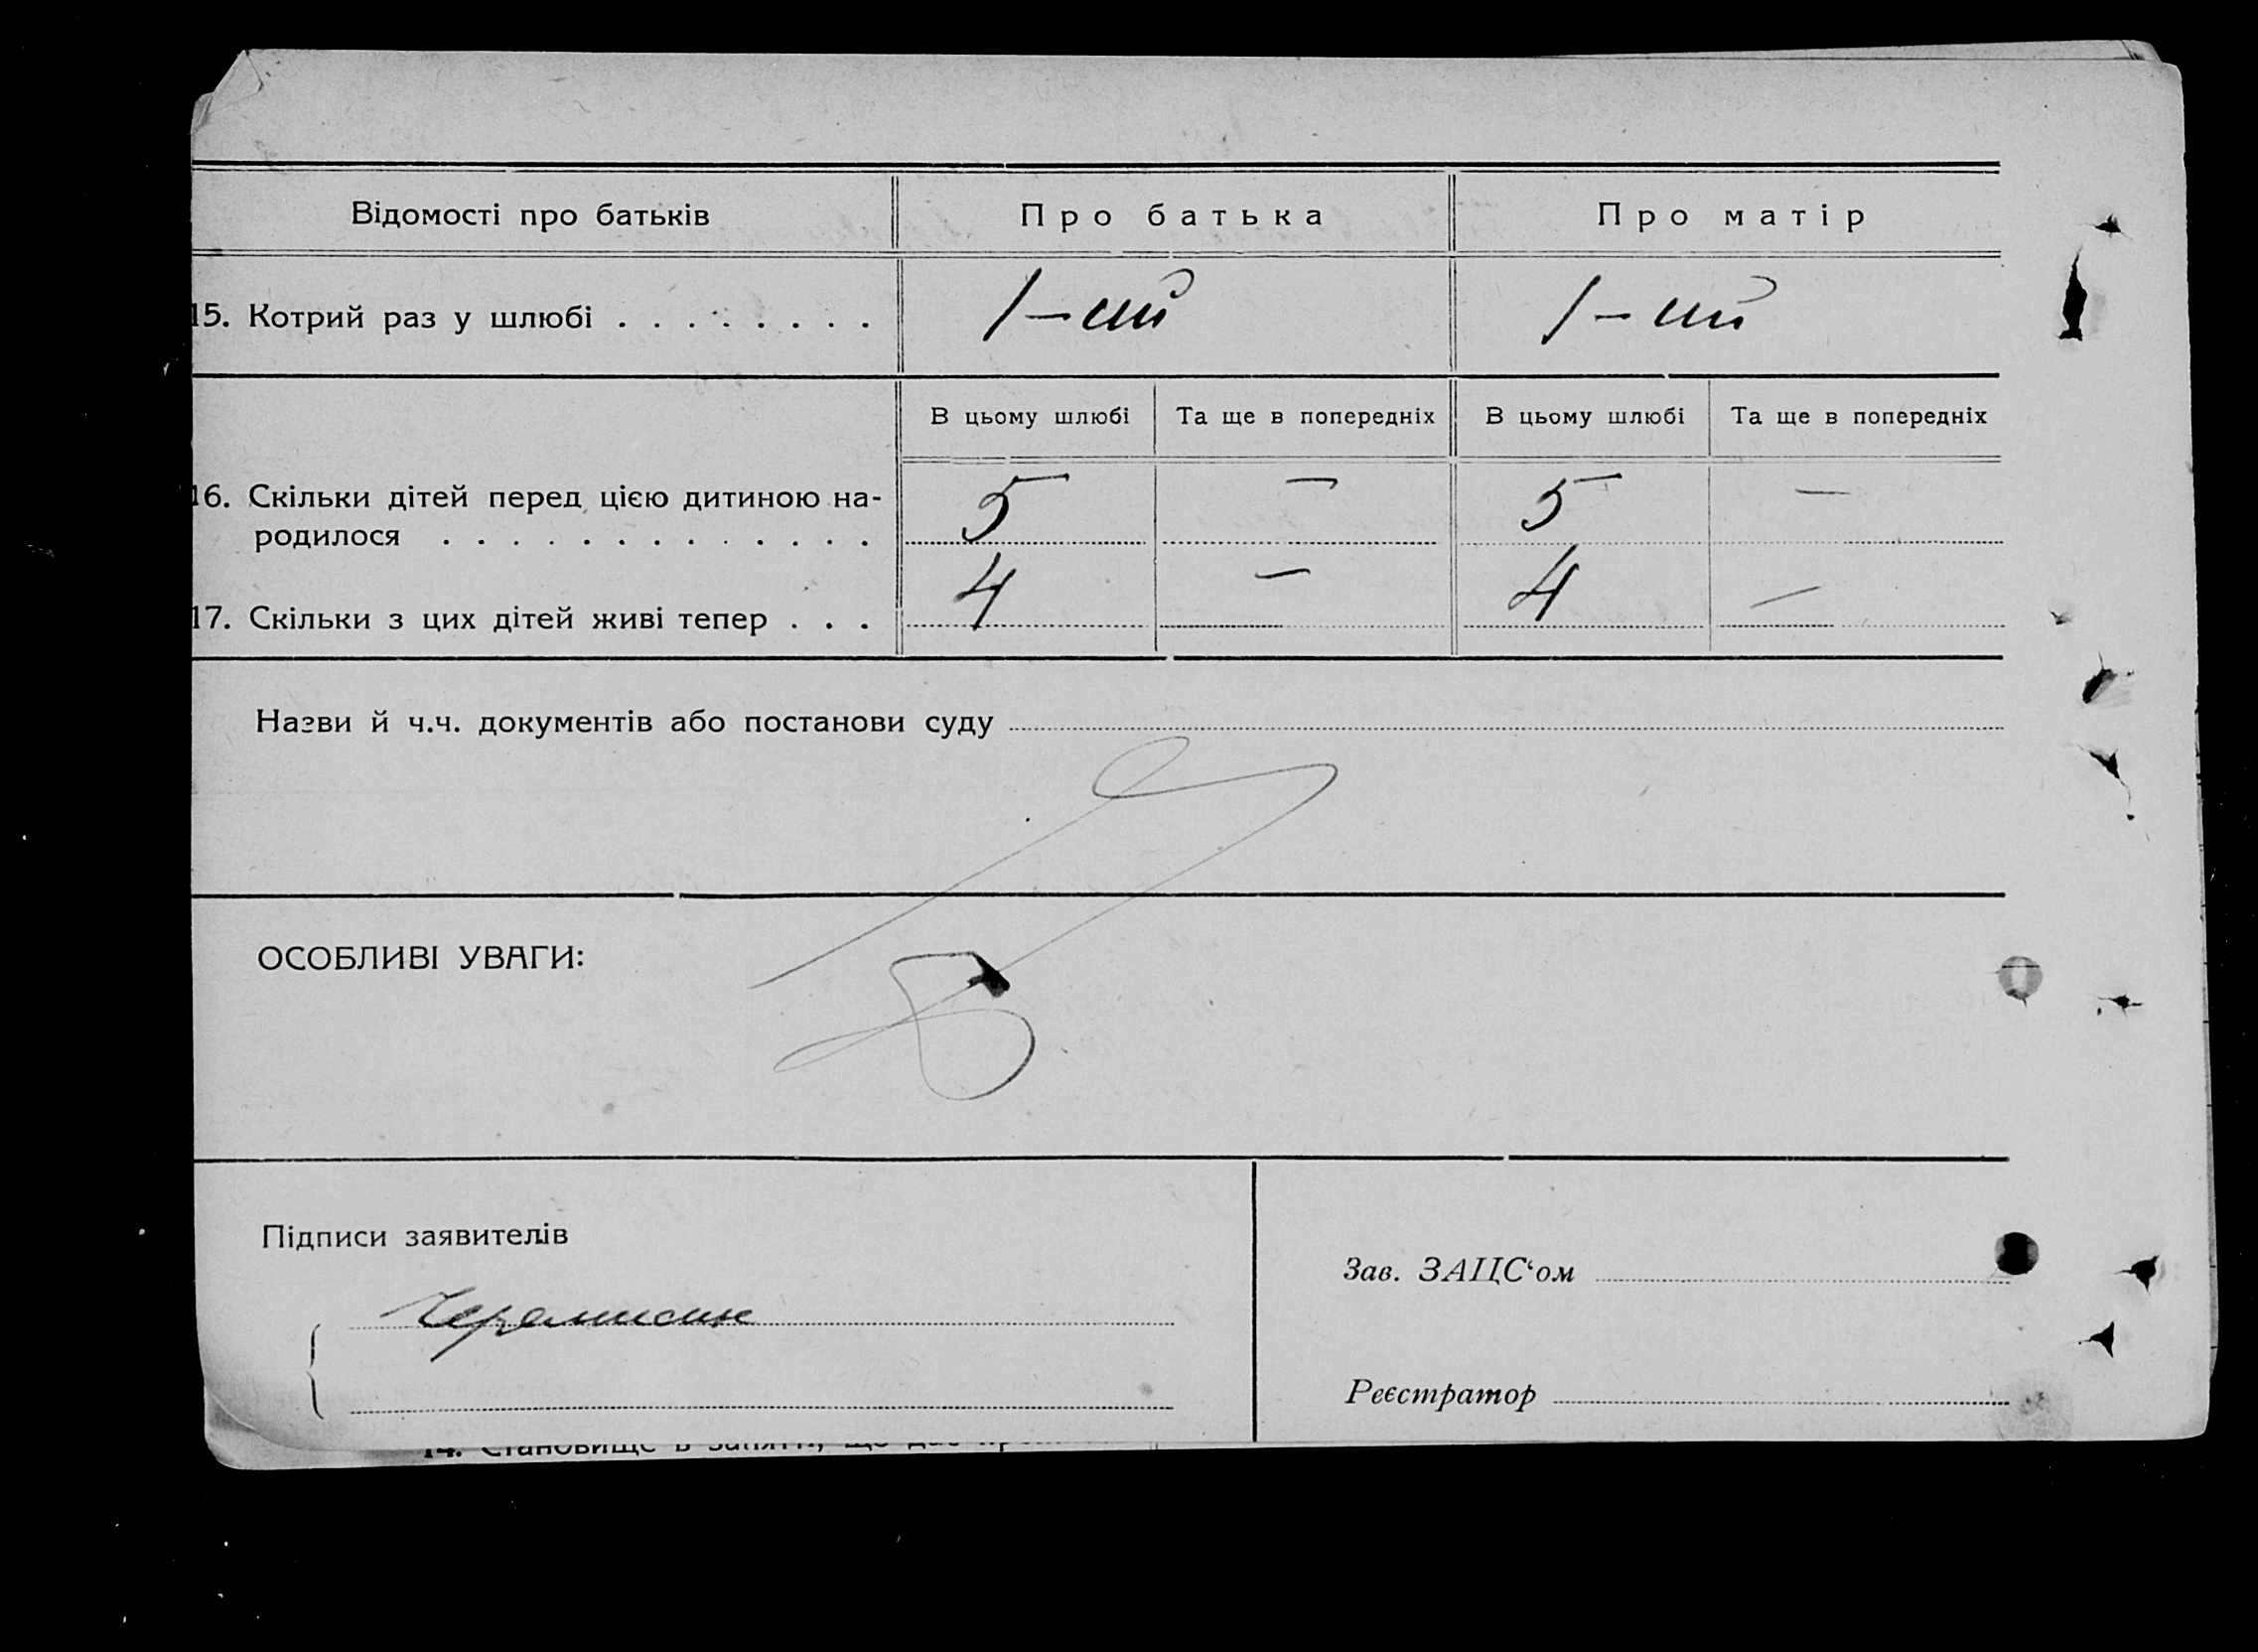 Відомості про батьків Про батька Про матір
15. Котрий раз у шлюбі . . . . . . . . 1-ий 1-ий
В цьому шлюбі Та ще в попередніх В цьому шлюбі Та ще в попередніх
16. Скільки дітей перед цією дитиною на- 5 — 5 —
родилося . . . . . . . . . . . . .
17. Скільки з цих дітей живі тепер . . . 4 — 4 —
Назви й ч.ч. документів або постанови суду
ОСОБЛИВІ УВАГИ:
Підписи заявителів
Зав. ЗАЦС‘ом
Черемисин
Реєстратор
14. Становище в занятті, що дає